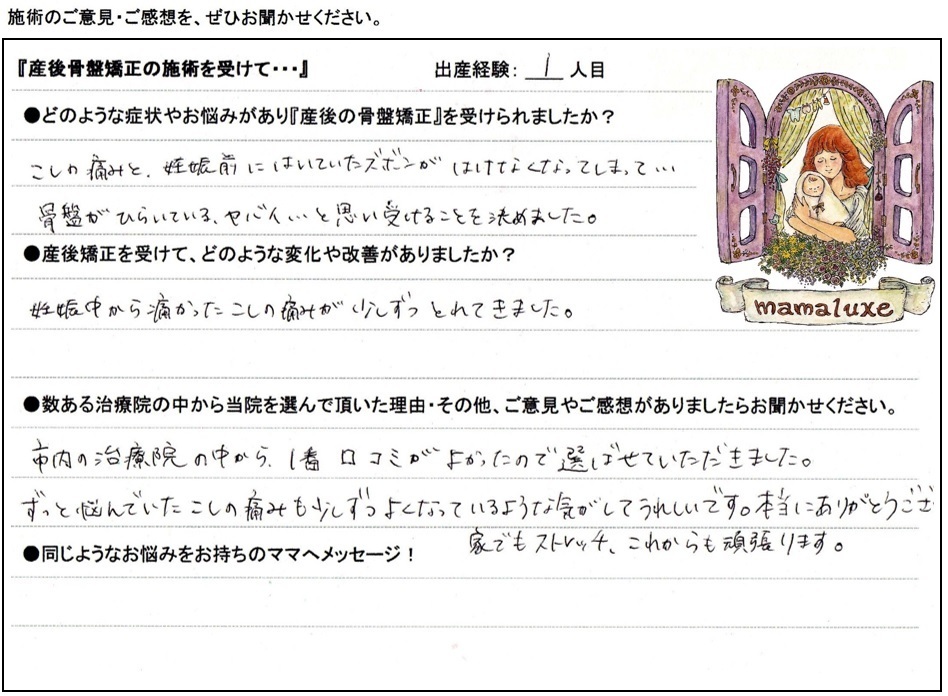 施術のご意見・ご感想を、ぜひお聞かせください。
『産後骨盤矯正の施術を受けて・・・』 出産経験： 1 人目
●どのような症状やお悩みがあり『産後の骨盤矯正』を受けられましたか？
こしの痛みと、妊娠前にはいていたズボンがはけなくなってしまって…
骨盤がひらいている、ヤバイ…と思い受けることを決めました。
●産後矯正を受けて、どのような変化や改善がありましたか？
妊娠中から痛かったこしの痛みが少しずつとれてきました。
mamaluxe
●数ある治療院の中から当院を選んで頂いた理由・その他、ご意見やご感想がありましたらお聞かせください。
市内の治療院の中から、1番口コミがよかったので選ばせていただきました。
ずっと悩んでいたこしの痛みも少しずつよくなっているような気がしてうれしいです。本当にありがとうござ
家でもストレッチ、これからも頑張ります。
●同じようなお悩みをお持ちのママへメッセージ！